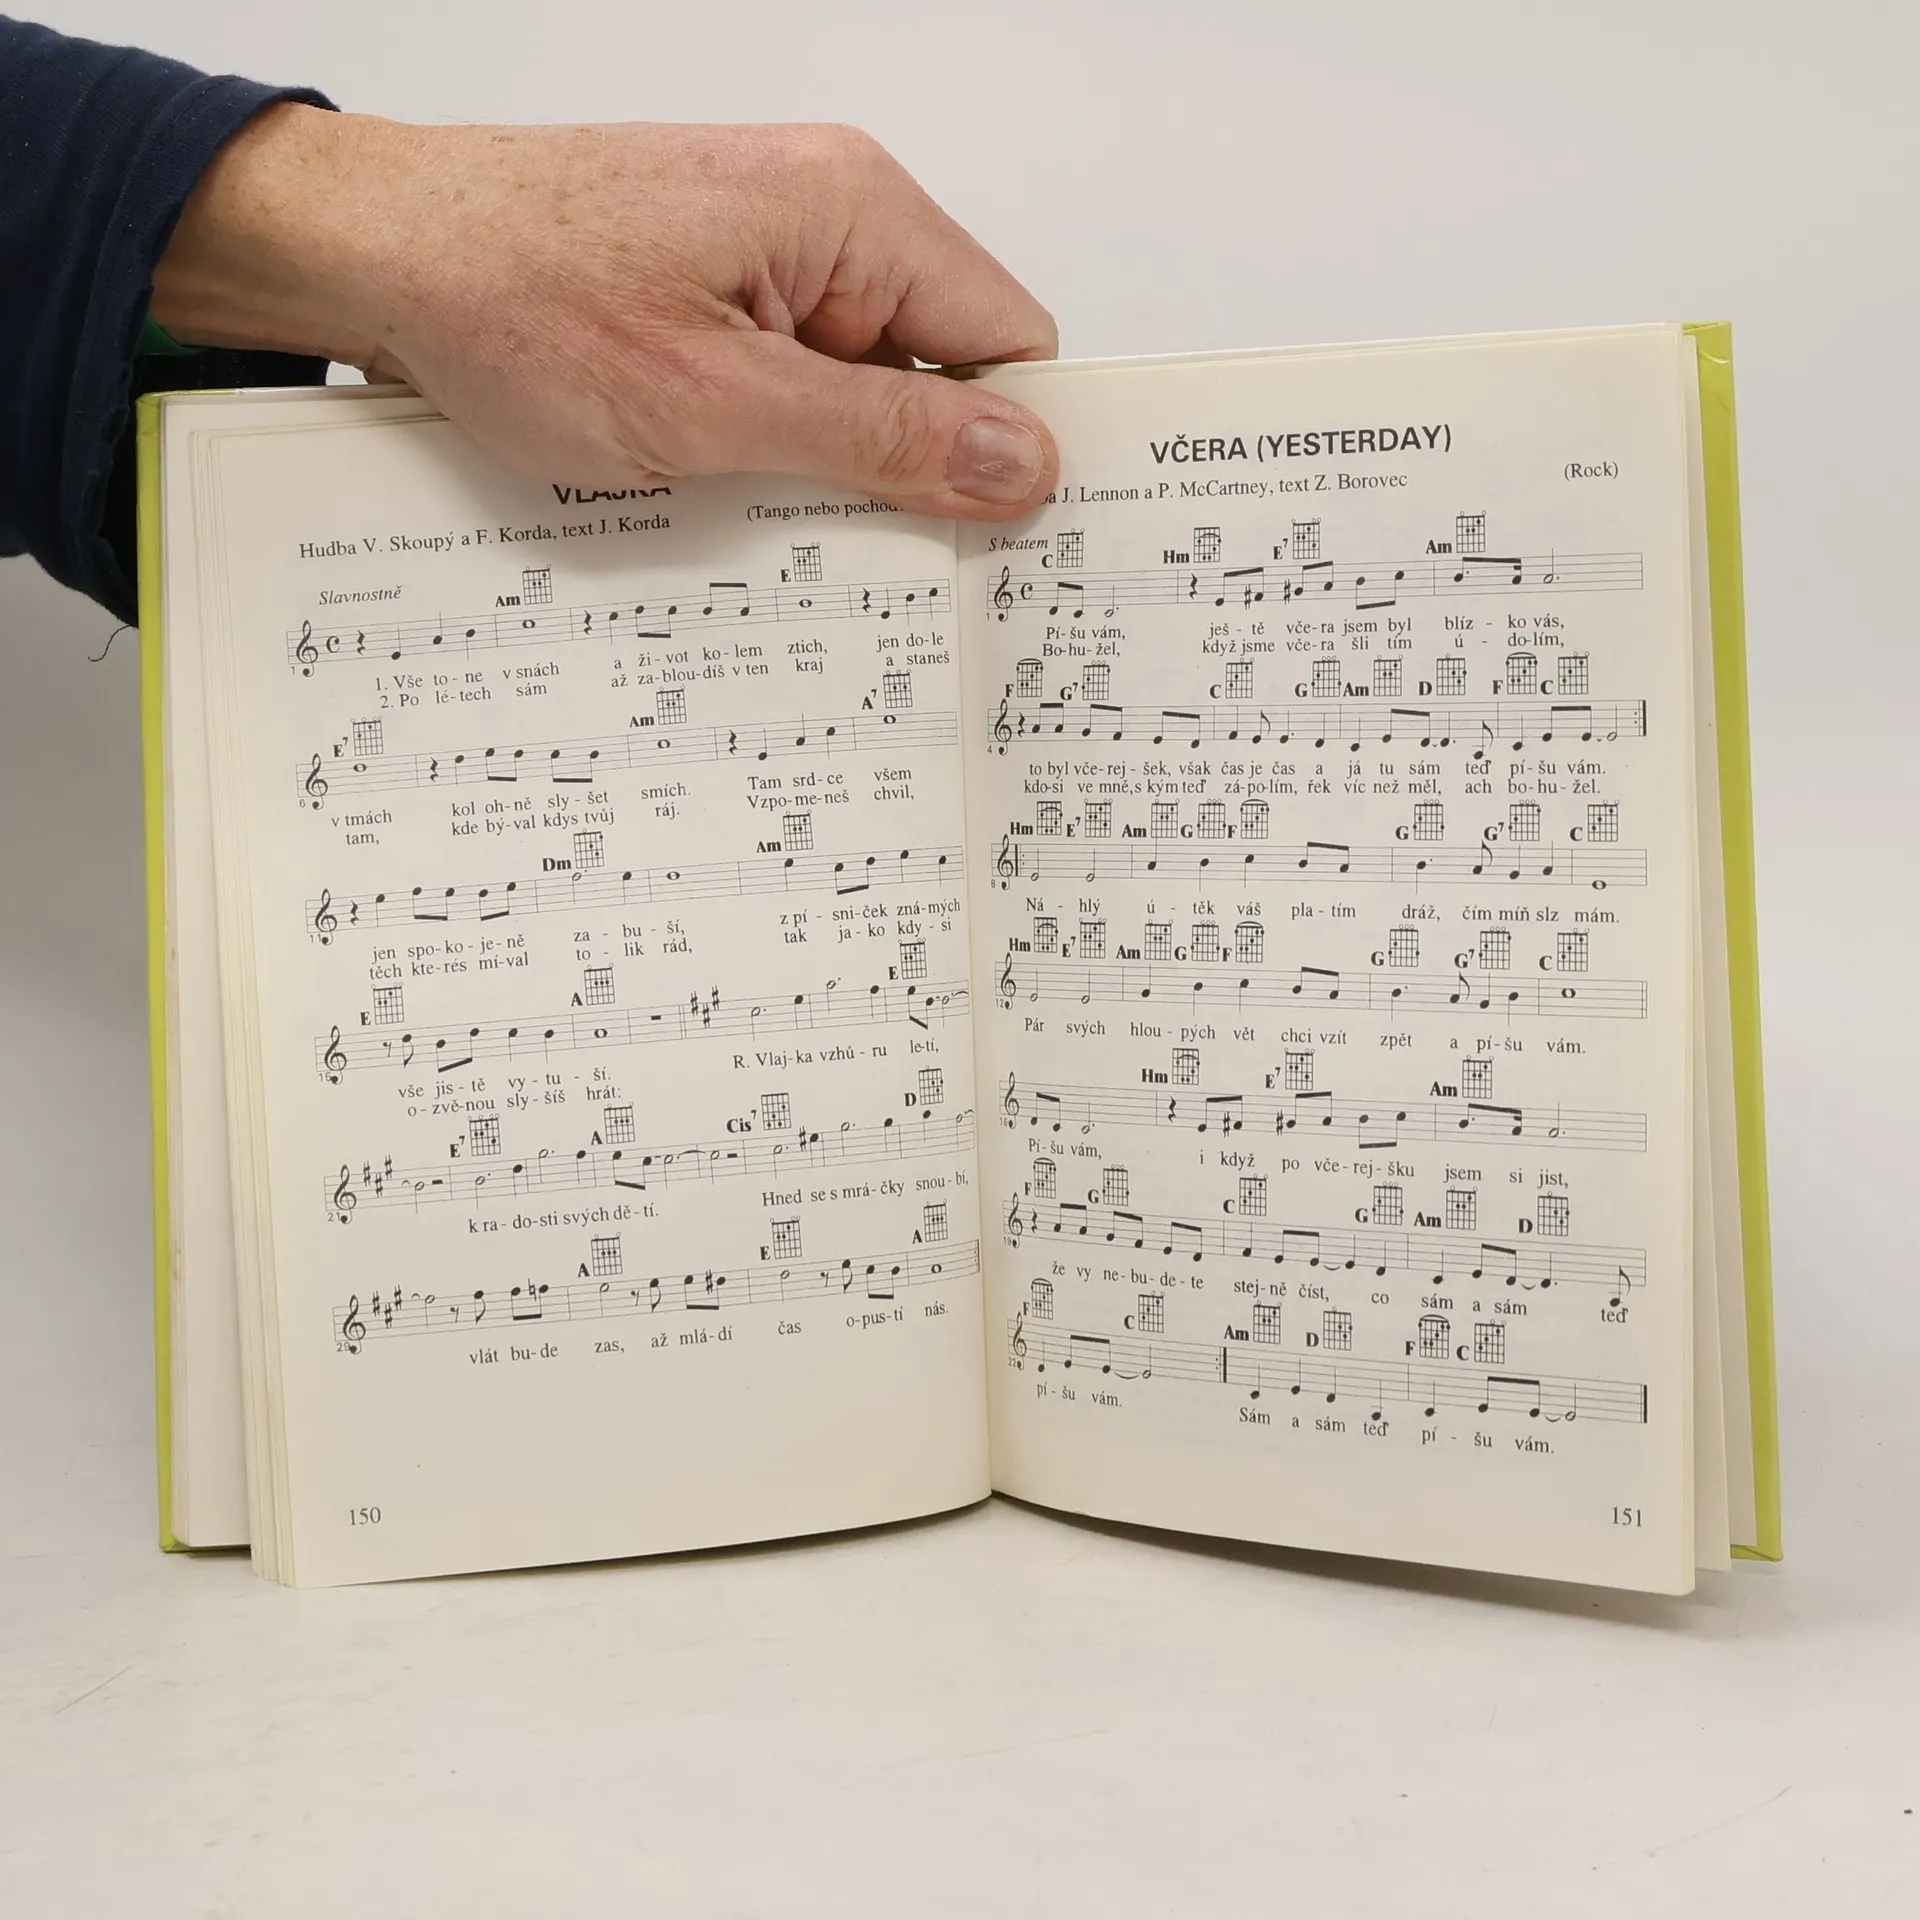 VLAJKA
(Tango nebo
Hudba V. Skoupý a F. Korda, text J. Korda
Slavnostně
Am E
1
1. Vše to - ne v snách a ži - vot ko - lem ztich, jen do - le
2. Po lé - tech sám až za - blou - díš v ten kraj a staneš
E7 Am A7
6
v tmách kol oh - ně sly - šet smích. Tam srd - ce všem
tam, kde bý - val kdys tvůj ráj. Vzpo - me - neš chvil,
Dm Am
11
jen spo - ko - je - ně za - bu - ší, z pí - sni - ček zná - mých
těch kte - rés mí - val to - lik rád, tak ja - ko kdy - si
E A E
15
vše jis - tě vy - tu - ší. R. Vlaj - ka vzhů - ru le - tí,
o - zvě - nou sly - šíš hrát:
E7 A Cis7 D
21
k ra - do - sti svých dě - tí. Hned se s mrá - čky snou - bí,
A E A
29
vlát bu - de zas, až mlá - dí čas o - pus - tí nás.
150
VČERA (YESTERDAY)
(Rock)
J. Lennon a P. McCartney, text Z. Borovec
S beatem
C Hm E7 Am
1
Pí - šu vám, ješ - tě vče - ra jsem byl blíz - ko vás,
Bo - hu - žel, když jsme vče - ra šli tím ú - do - lím,
F G7 C G Am D F C
4
to byl vče - rej - šek, však čas je čas a já tu sám teď pí - šu vám.
kdo - si ve mně, s kým teď zá - po - lím, řek víc než měl, ach bo - hu - žel.
Hm E7 Am G F G G7 C
8
Ná - hlý ú - těk váš pla - tím dráž, čím míň slz mám.
Hm E7 Am G F G G7 C
12
Pár svých hlou - pých vět chci vzít zpět a pí - šu vám.
Hm E7 Am
16
Pí - šu vám, i když po vče - rej - šku jsem si jist,
F G C G Am D
19
že vy ne - bu - de - te stej - ně číst, co sám a sám teď
F C Am D F C
22
pí - šu vám. Sám a sám teď pí - šu vám.
151